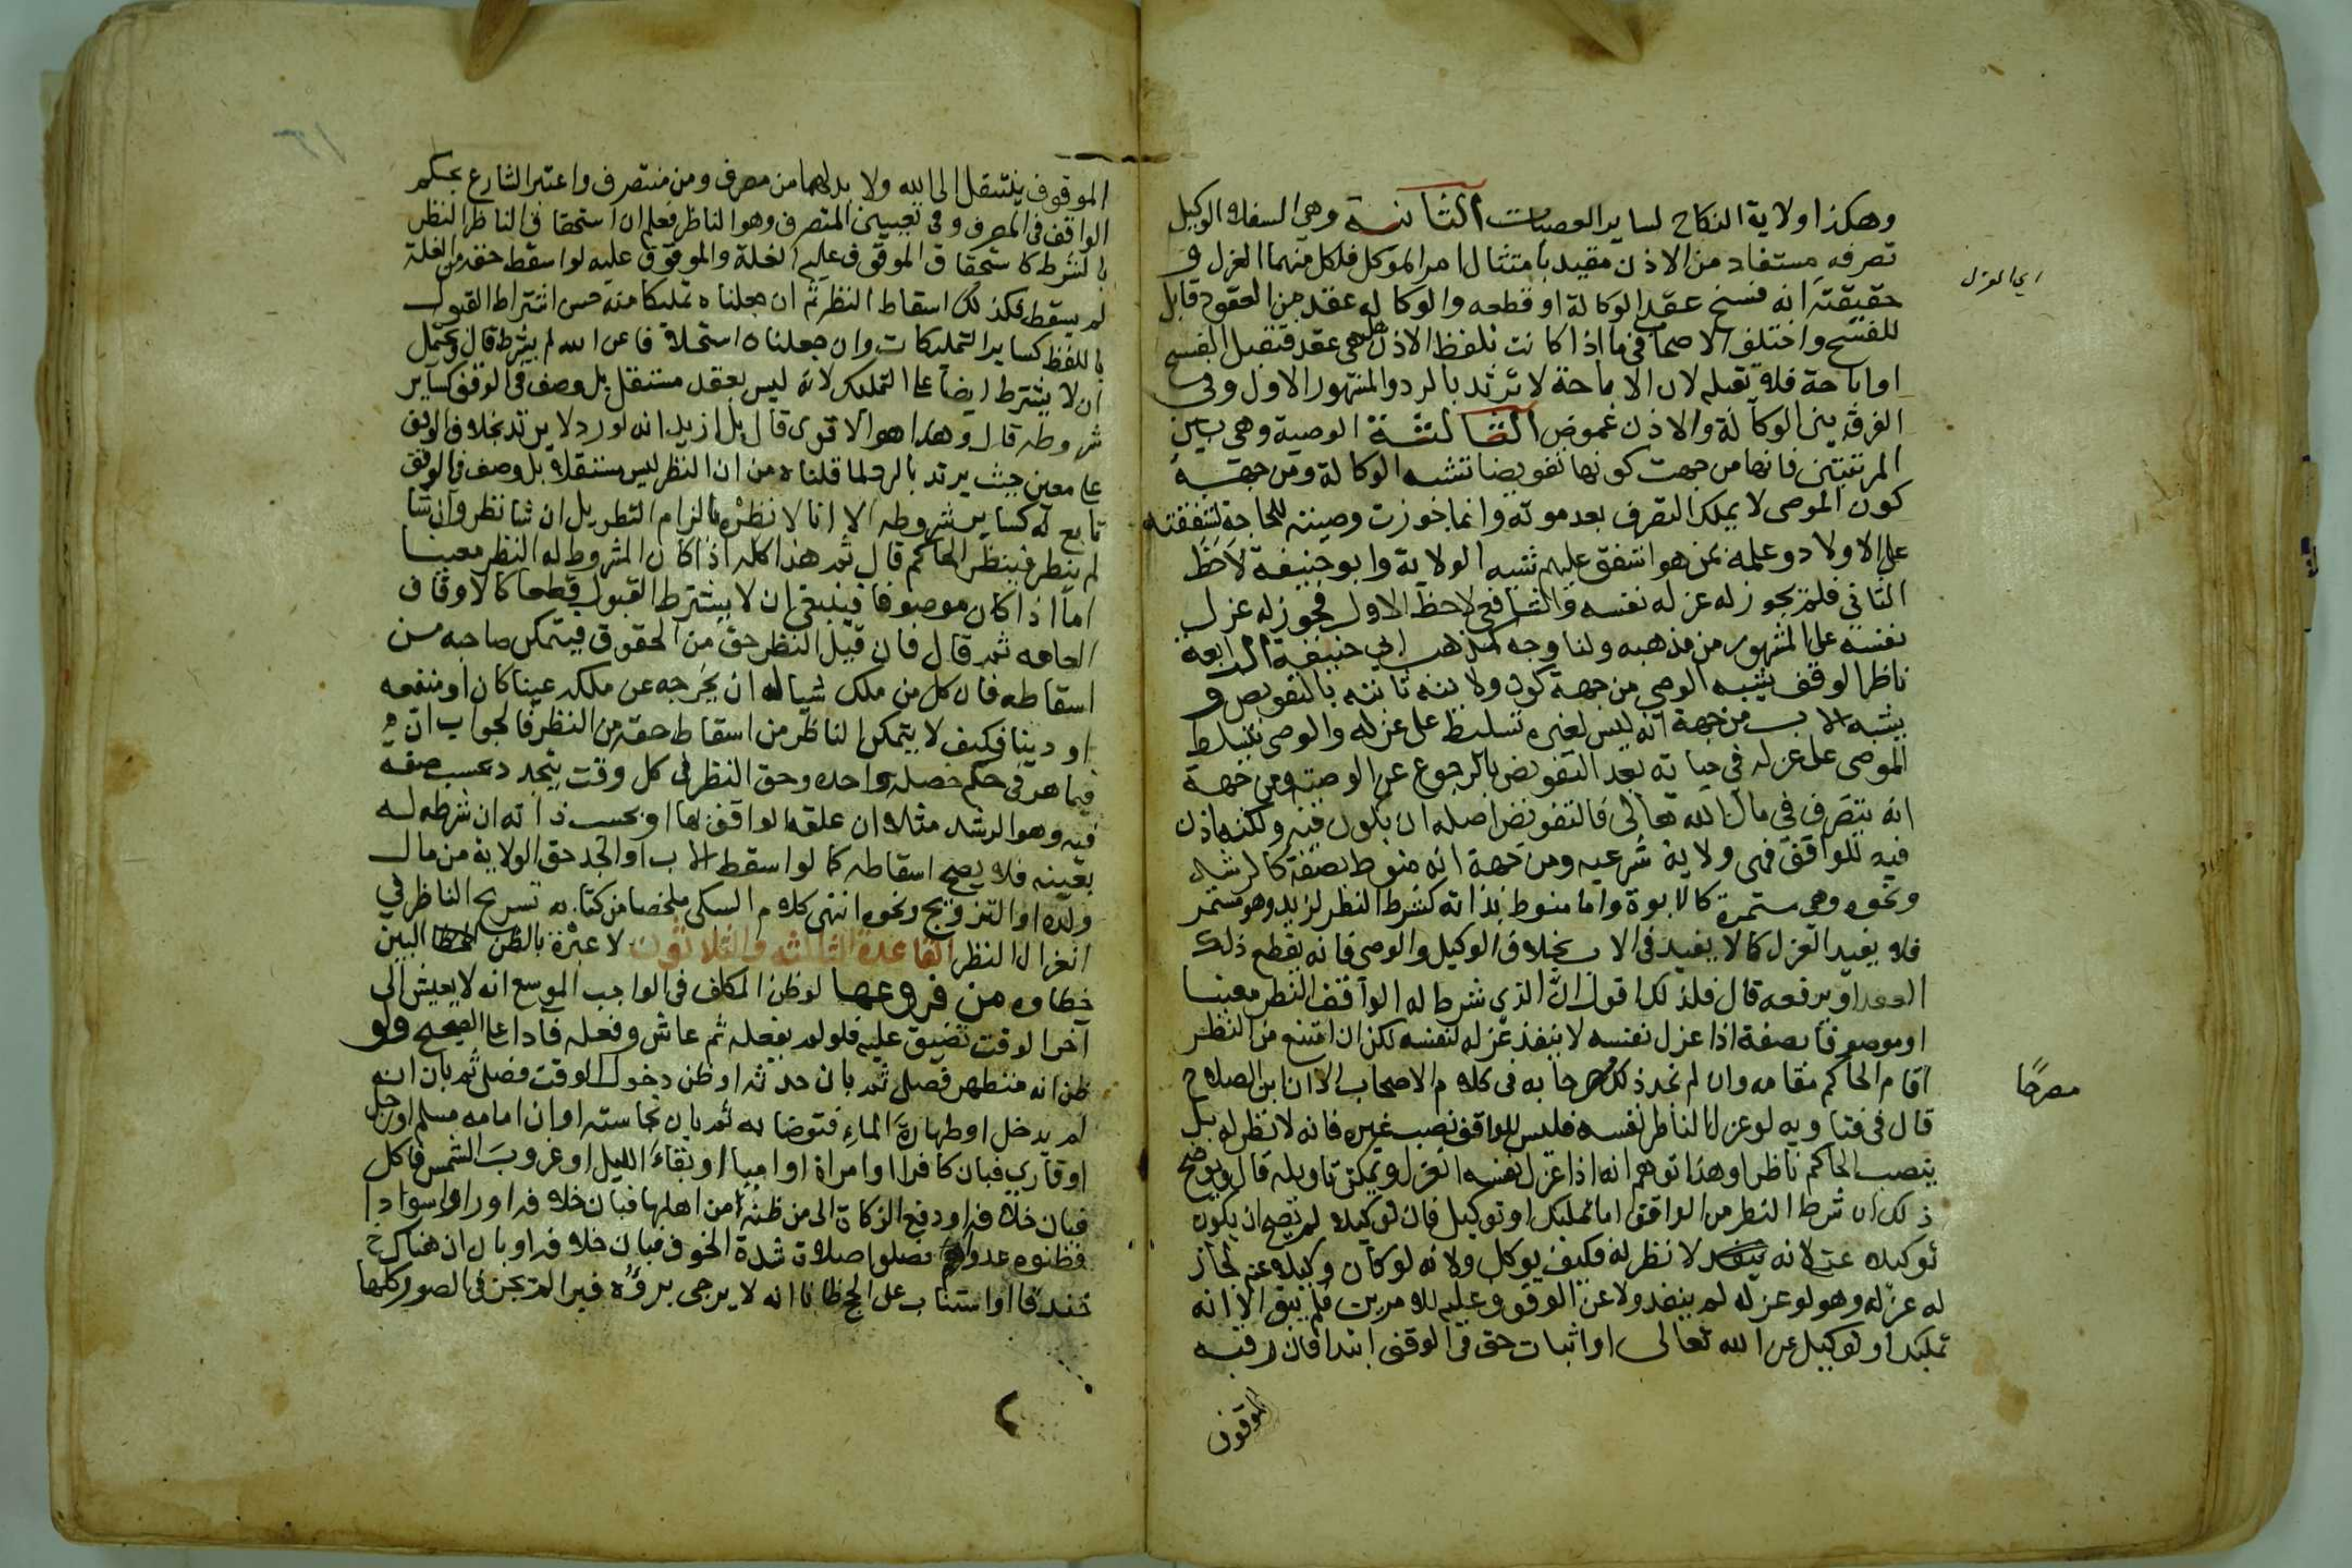 وهكذا ولاية النكاح لساير العصبات الثانية وهي السفلى الوكيل
تصرفه مستفاد من الاذن مقيد بامتثال امر الموكل فلكل منهما العزل و
حقيقته انه فسخ عقد الوكالة او قطعه والوكالة عقد من العقود قابل
للفسخ واختلف الاصحاب فيما اذا كانت بلفظ الاذن هل هي عقد فتقبل الفسخ
او اباحة فلا تقبله لان الاباحة لا ترتد بالرد والمشهور الاول وفي
الفرق بين الوكالة والاذن غموض الثالثة الوصية وهي بين
المرتبتين فانها من جهت كونها تفويضا تشبه الوكالة ومن جهة
كون الموصى لا يملك التصرف بعد موته وانما جوزت وصيته للحاجة لشفقته
على الاولاد وعلمه بمن هو اشفق عليهم تشبه الولاية وابو حنيفة لاحظ
الثاني فلم يجوز له عزل نفسه والشافعي لاحظ الاول فجوز له عزل
نفسه على المشهور من مذهبه ولنا وجه كمذهب ابي حنيفة الرابعة
ناظر الوقف يشبه الوصي من جهة كون ولايته ثابتة بالتفويض و
يشبه الاب من جهة انه ليس لغيره تسليط على عزله والوصي يتسلط
الموصى على عزله في حياته بعد التفويض بالرجوع عن الوصية ومن جهة
انه يتصرف في مال الله تعالى فالتفويض اصله ان يكون فيه ولكنه اذن
فيه للواقف فهي ولاية شرعيه ومن جهة انه منوط بصفة كالرشد
ونحوه وهي مستمرة كالابوة واما منوط بذاته كشرط النظر لزيد وهو مستمر
فلا يفيد العزل كما لا يفيد في الاب بخلاف الوكيل والوصي فانه يقطع ذلك
العقد او يرفعه قال فلذلك اقول ان الذي شرط له الواقف النظر معينا
او موصوفا بصفة اذا عزل نفسه لا ينفذ عزله لنفسه لكن ان امتنع من النظر
اقام الحاكم مقامه وان لم نجد ذلك مصرحا به في كلام الاصحاب الا ان ابن الصلاح
قال في فتاويه لو عزل الناظر نفسه فليس للواقف نصب غيره فانه لا نظر له بل
ينصب الحاكم ناظرا وهذا توهم انه اذا عزل نفسه انعزل ويمكن تاويله قال ويوضح
ذلك ان شرط النظر من الواقف اما تمليك او توكيل فان توكيلا لم يصح ان يكون
توكيلا عنه لانه لا نظر له فكيف يوكل ولانه لو كان وكيلا عنه لجاز
له عزله وهو لو عزله لم ينفذ ولا عن الموقوف عليه للامرين فلم يبق الا انه
تمليك او توكيل عن الله تعالى او اثبات حق في الوقف ابتدا فان رقبه
الموقوف
اي العزل
مصرحا
الموقوف ينتقل الى الله ولا بد لهما من مصرف ومن متصرف واعتبر الشارع بحكم
الواقف في المصرف وفي تعيين المتصرف وهو الناظر فعلم ان استحقاق الناظر النظر
بالشرط كاستحقاق الموقوف عليه الغلة والموقوف عليه لو اسقط حقه من الغلة
لم يسقط فكذلك اسقاط النظر ثم ان جعلناه تمليكا منه حسن اشتراط القبول
باللفظ كساير التمليكات وان جعلناه استحلافا عن الله لم يشترط قال ويحتمل
ان لا يشترط ايضا على التمليك لانه ليس بعقد مستقل بل وصف في الوقف كساير
شروطه قال وهذا هو الاقوى قال بل ازيد انه لو رد لا يرتد بخلاف الوقف
على معين حيث يرتد بالرد لما قلناه من ان النظر ليس مستقلا بل وصف في الوقف
تابع له كساير شروطه الا انا لا نضره بالزام النظر بل ان شا نظر وان شا
لم ينظر فينظر الحاكم قال ثم هذا كله اذا كان المشروط له النظر معينا
اما اذا كان موصوفا فينبغي ان لا يشترط القبول قطعا كالاوقاف
العامه ثم قال فان قيل النظر حق من الحقوق فيتمكن صاحبه من
اسقاطه فان كل من ملك شيا له ان يخرجه عن ملكه عينا كان او منفعه
او دينا فكيف لا يتمكن الناظر من اسقاط حقه من النظر فالجواب ان
فيما هو في حكم خصلة واحده وحق النظر في كل وقت يتجدد بحسب صفه
فيه وهو الرشد مثلا ان علقه الواقف بها او بحسب ذاته ان شرطه له
بعينه فلا يصح اسقاطه كما لو اسقط الاب او الجد حق الولاية من مال
ولده او التزويج ونحوه انتهى كلام السبكي ملخصا من كتابه تسريح الناظر في
انعزال الناظر القاعدة الثالثة والثلاثون لا عبرة بالظن البين
خطاوه من فروعها لو ظن المكلف في الواجب الموسع انه لا يعيش الى
آخر الوقت تضيق عليه فلو لم يفعله ثم عاش وفعله فادا على الصحيح ولو
ظن انه متطهر فصلى ثم بان حدثه او ظن دخول الوقت فصلى ثم بان انه
لم يدخل او طهارة الماء فتوضا به ثم بان نجاسته او ان امامه مسلم او رجل
او قاري فبان كافرا او امراة او اميا او بقاء الليل او غروب الشمس فاكل
فبان خلافه او دفع الزكاة الى من ظنه من اهلها فبان خلافه او راوا سوادا
فظنوه عدوا فصلوا صلاة شدة الخوف فبان خلافه او بان ان هناك
خندقا او استناب على الحج ظانا انه لا يرجى برؤه فبرا لم يجز في الصور كلها